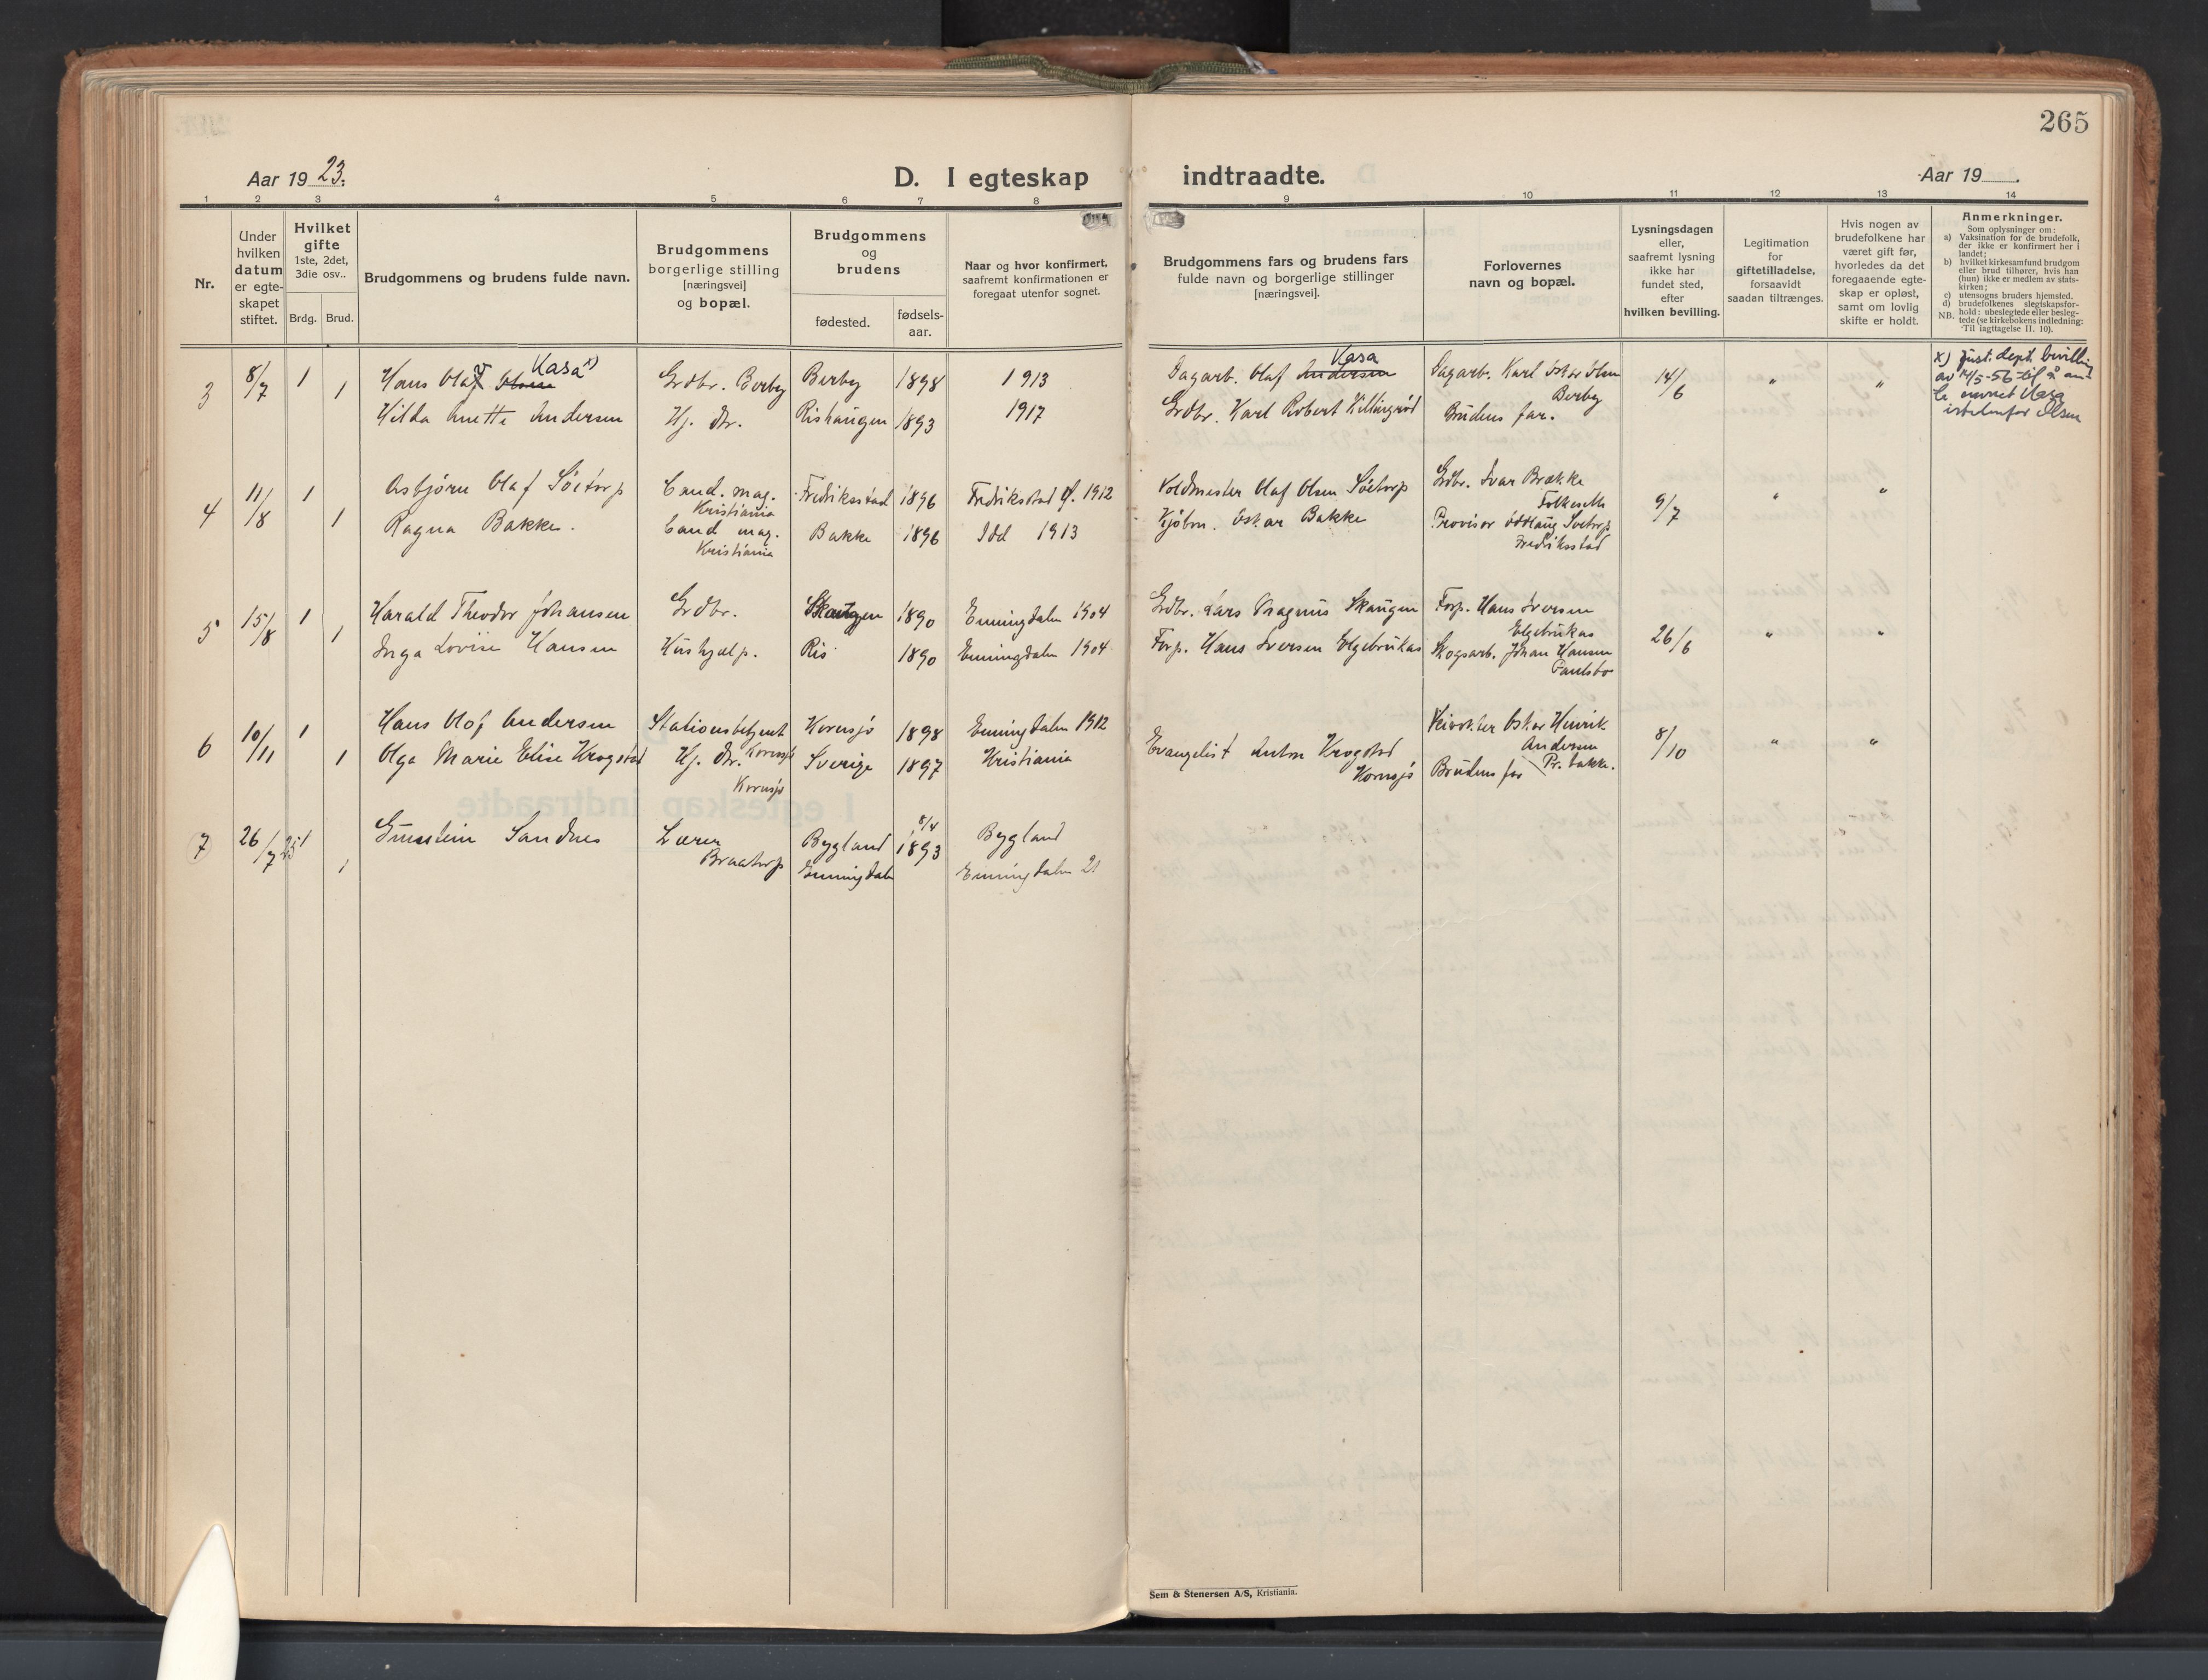 265
Aar 1923.
D. I egteskap
indtraadte.
Aar 19
1 2 3 4 5 6 7 8 9 10 11 12 13 14
Nr.
Under hvilken datum er egte-skapet stiftet.
Hvilket gifte 1ste, 2det, 3die osv..
Brdg. Brud.
Brudgommens og brudens fulde navn.
Brudgommens borgerlige stilling [næringsvei] og bopæl.
Brudgommens og brudens
fødested.
fødsels-aar.
Naar og hvor konfirmert, saafremt konfirmationen er foregaat utenfor sognet.
Brudgommens fars og brudens fars fulde navn og borgerlige stillinger [næringsvei].
Forlovernes navn og bopæl.
Lysningsdagen eller, saafremt lysning ikke har fundet sted, efter hvilken bevilling.
Legitimation for giftetilladelse, forsaavidt saadan tiltrænges.
Hvis nogen av brudefolkene har været gift før, hvorledes da det foregaaende egte-skap er opløst, samt om lovlig skifte er holdt.
Anmerkninger.
Som oplysninger om:
a) Vaksination for de brudefolk, der ikke er konfirmert her i landet;
b) hvilket kirkesamfund brudgom eller brud tilhører, hvis han (hun) ikke er medlem av stats-kirken;
c) utensogns bruders hjemsted.
d) brudefolkenes slegtskapsfor-hold: ubeslegtede eller besleg-tede (se kirkebokens indledning:
NB. Til iagttagelse II. 10).
3 8/7 1 Hans Olaf Olsen Vasa x) Grdbr. Berby Berby 1898 1913 Sagarb. Olaf Andersen Vasa Sagarb. Karl Oskar Olsen Berby 14/6 " "
x) Just. dept. bevilling av 14/5-56 til å anta navnet Vasa istedenfor Olsen
1 Hilda Anette Andersen Hj. dtr. Rishaugen 1893 1917 Grdbr. Karl Robert Killingrød Brudens far.
4 11/8 1 Asbjørn Olaf Söetorp Cand. mag. Kristiania Fredriksstad 1896 Fredriksstad 1912 Voldmester Olaf Olsen Söetorp Grdbr. Ivar Brække 9/7 " "
1 Ragna Bakke. Cand mag. Kristiania Bakke 1896 Idd 1913 Kjøbm. Oskar Bakke Provisor Oddlaug Soetorp Fredriksstad
5 15/8 1 Harald Theodor Johansen Grdbr. Skaugen 1890 Enningdalen 1904 Grdbr. Lars Magnus Skaugen Forp. Hans Iversen Elgebrukas 26/6 " "
1 Inga Lovise Hansen Hushjælp. Ris 1890 Enningdalen 1904 Forp. Hans Iversen Elgebrukas Skogsarb. Johan Hansen Paulsbo
6 10/11 1 Hans Olof Andersen Stationsbetjent Kornsjø Kornsjø 1898 Enningdalen 1912 Veivokter Oskar Henrik Andersen Pr. bakke. 8/10 " "
1 Olga Marie Elise Krogstad Hj. dtr. Kornsjø Sverige 1897 Kristiania Evangelist Anton Krogstad Kornsjø Brudens far
7 26/7 25 1 Sandnes Lærer Braatorp Bygland 8/4 1893 Bygland
1 Enningdalen Enningdalen 21
Sem & Stenersen A/S, Kristiania.